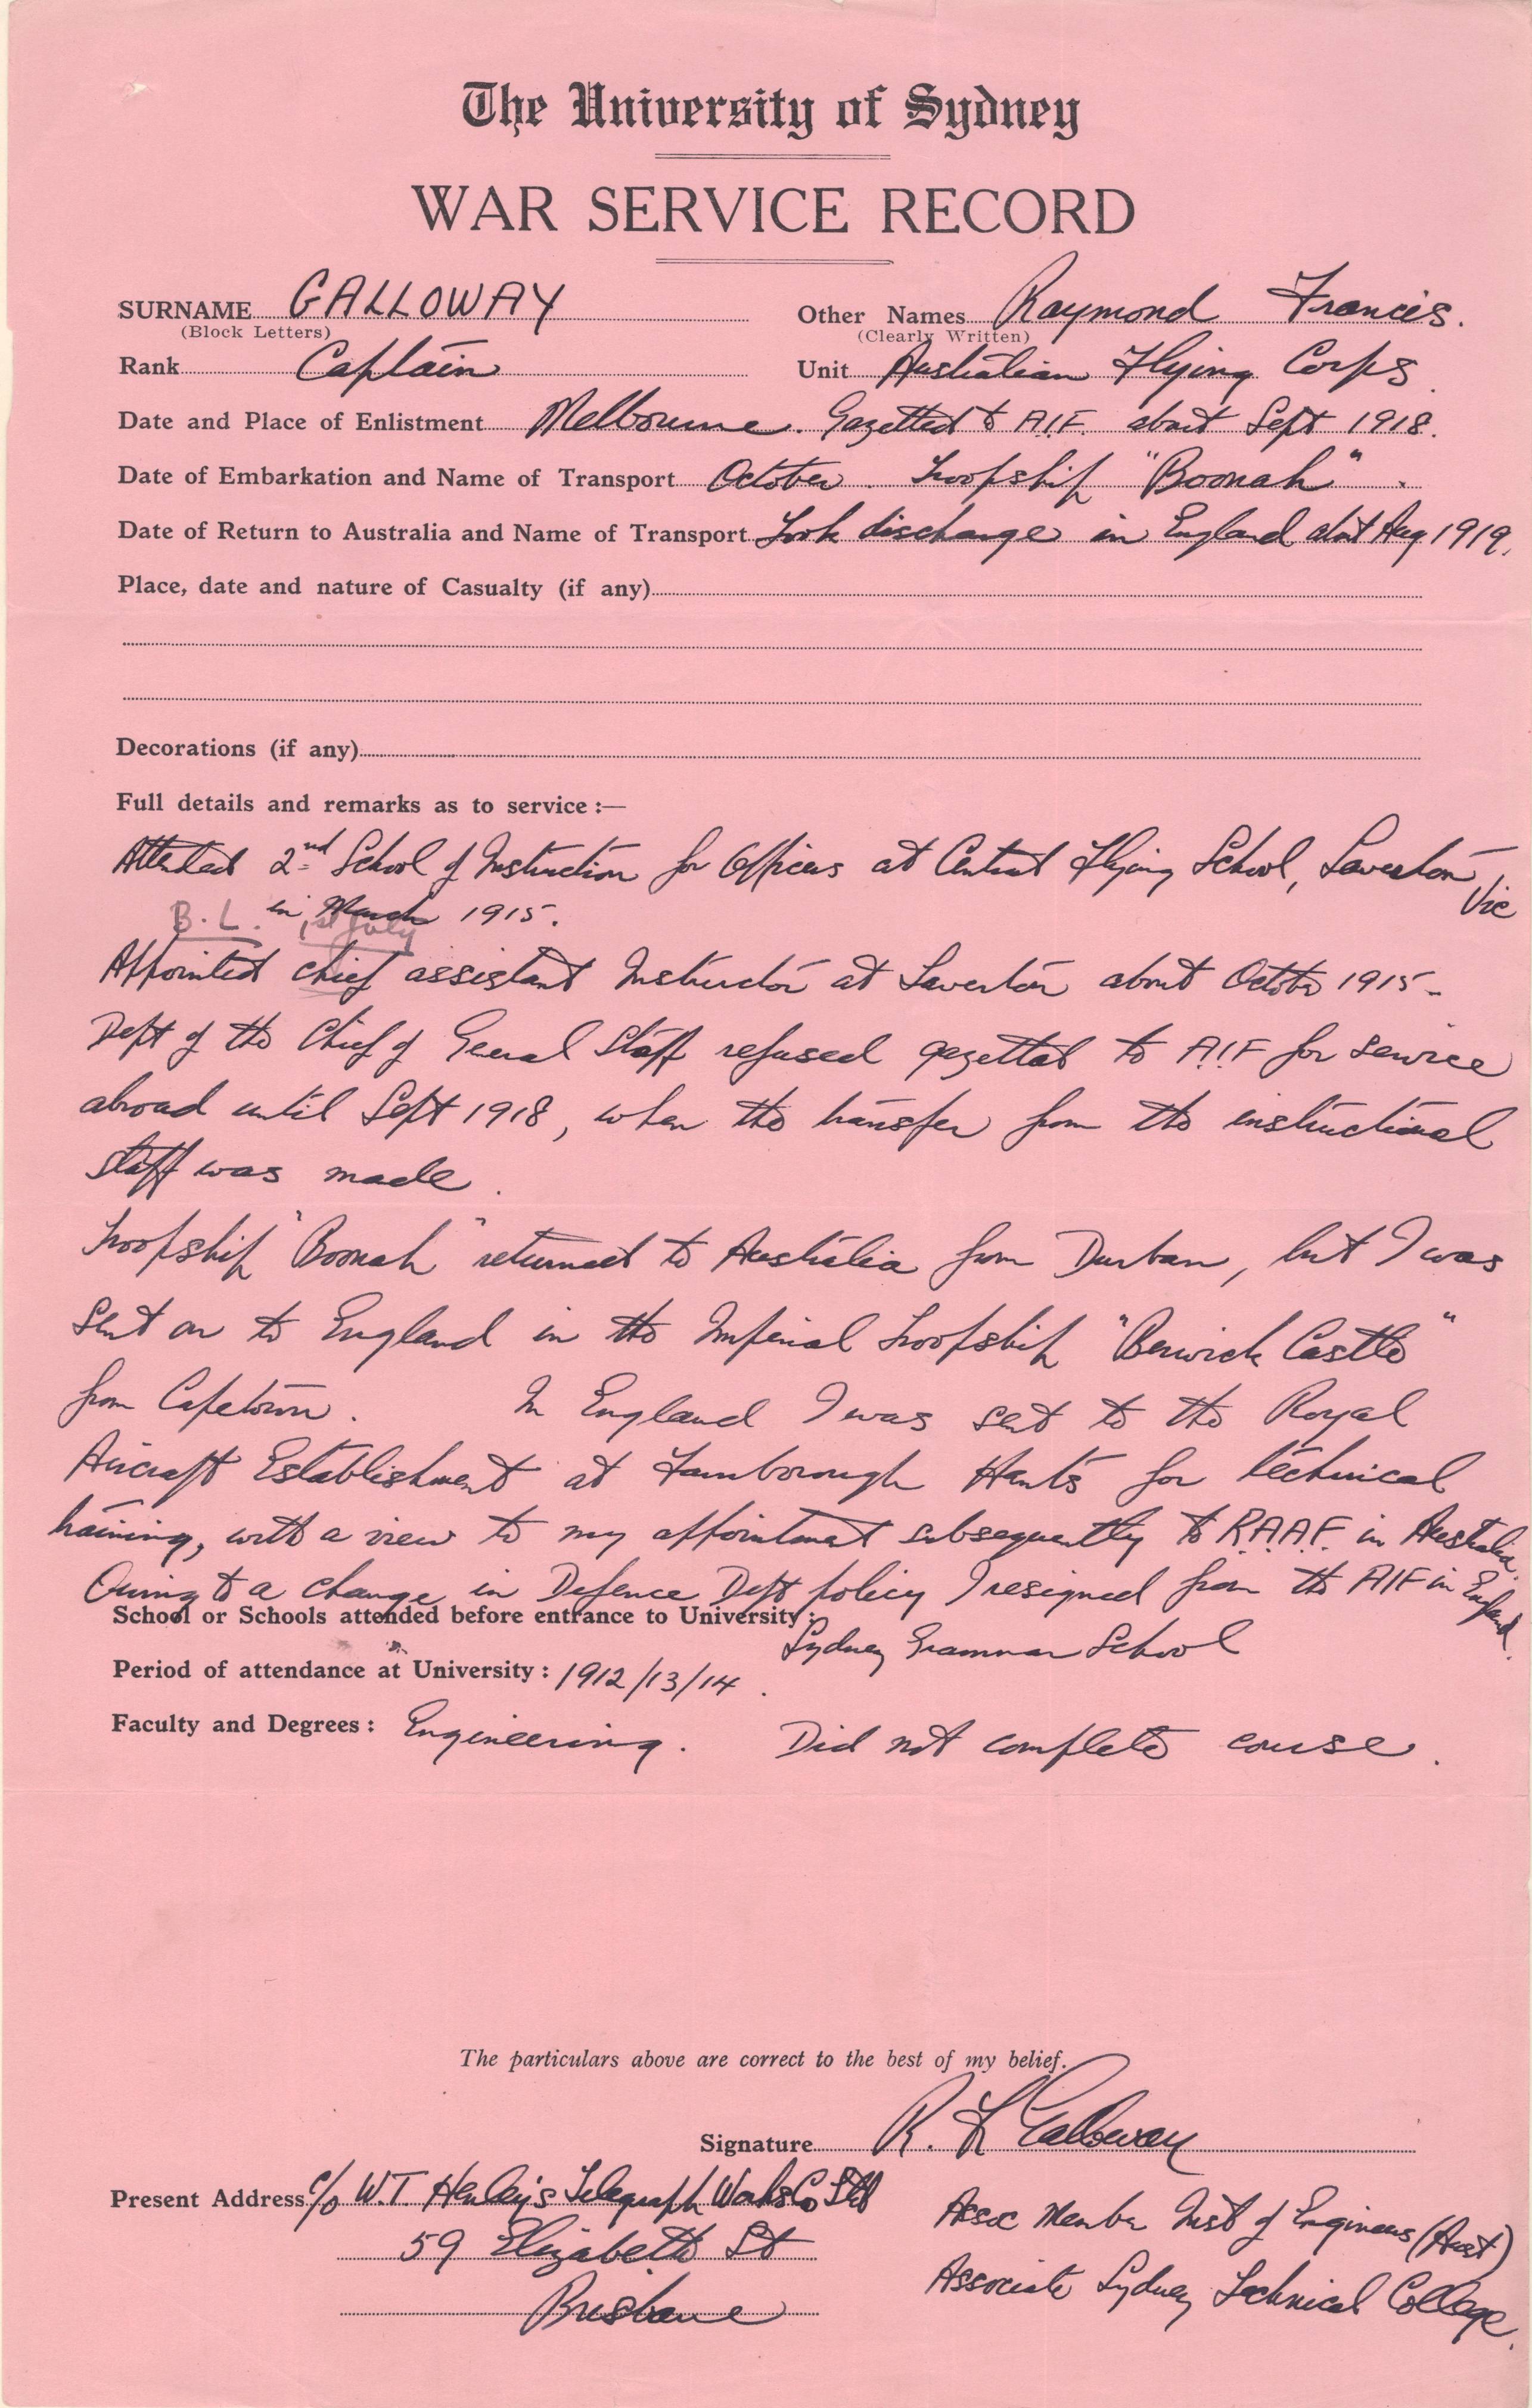 The University of Sydney
WAR SERVICE RECORD
SURNAME GALLOWAY Other Names Raymond Francis.
(Block Letters) (Clearly Written)
Rank Captain Unit Australian Flying Corps.
Date and Place of Enlistment Melbourne. Gazetted to A.I.F. about Sept 1918.
Date of Embarkation and Name of Transport October. Troopship "Boonah".
Date of Return to Australia and Name of Transport Took discharge in England abt Aug 1919.
Place, date and nature of Casualty (if any)
Decorations (if any)
Full details and remarks as to service :—
Attended 2nd School of Instruction for Officers at Central Flying School, Laverton, Vic
B.L. in March 1915.
1st July
Appointed chief assistant Instructor at Laverton about October 1915-
Dept of the Chief of General Staff refused gazettal to A.I.F for service
abroad until Sept 1918, when the transfer from the instructional
staff was made.
Troopship "Boonah" returned to Australia from Durban, but I was
sent on to England in the Imperial Troopship "Berwick Castle"
from Capetown. In England I was sent to the Royal
Aircraft Establishment at Farnborough Hants for technical
training, with a view to my appointment subsequently to R.A.A.F. in Australia.
Owing to a change in Defence Dept policy I resigned from the AIF in England.
School or Schools attended before entrance to University:
Sydney Grammar School
Period of attendance at University : 1912/13/14.
Faculty and Degrees : Engineering. Did not complete course.
The particulars above are correct to the best of my belief.
Signature R. F Galloway
Present Address c/o W.T Henley's Telegraph Works Co Ltd
59 Elizabeth St
Brisbane
Assoc Member Inst of Engineers (Aust)
Associate Sydney Technical College.